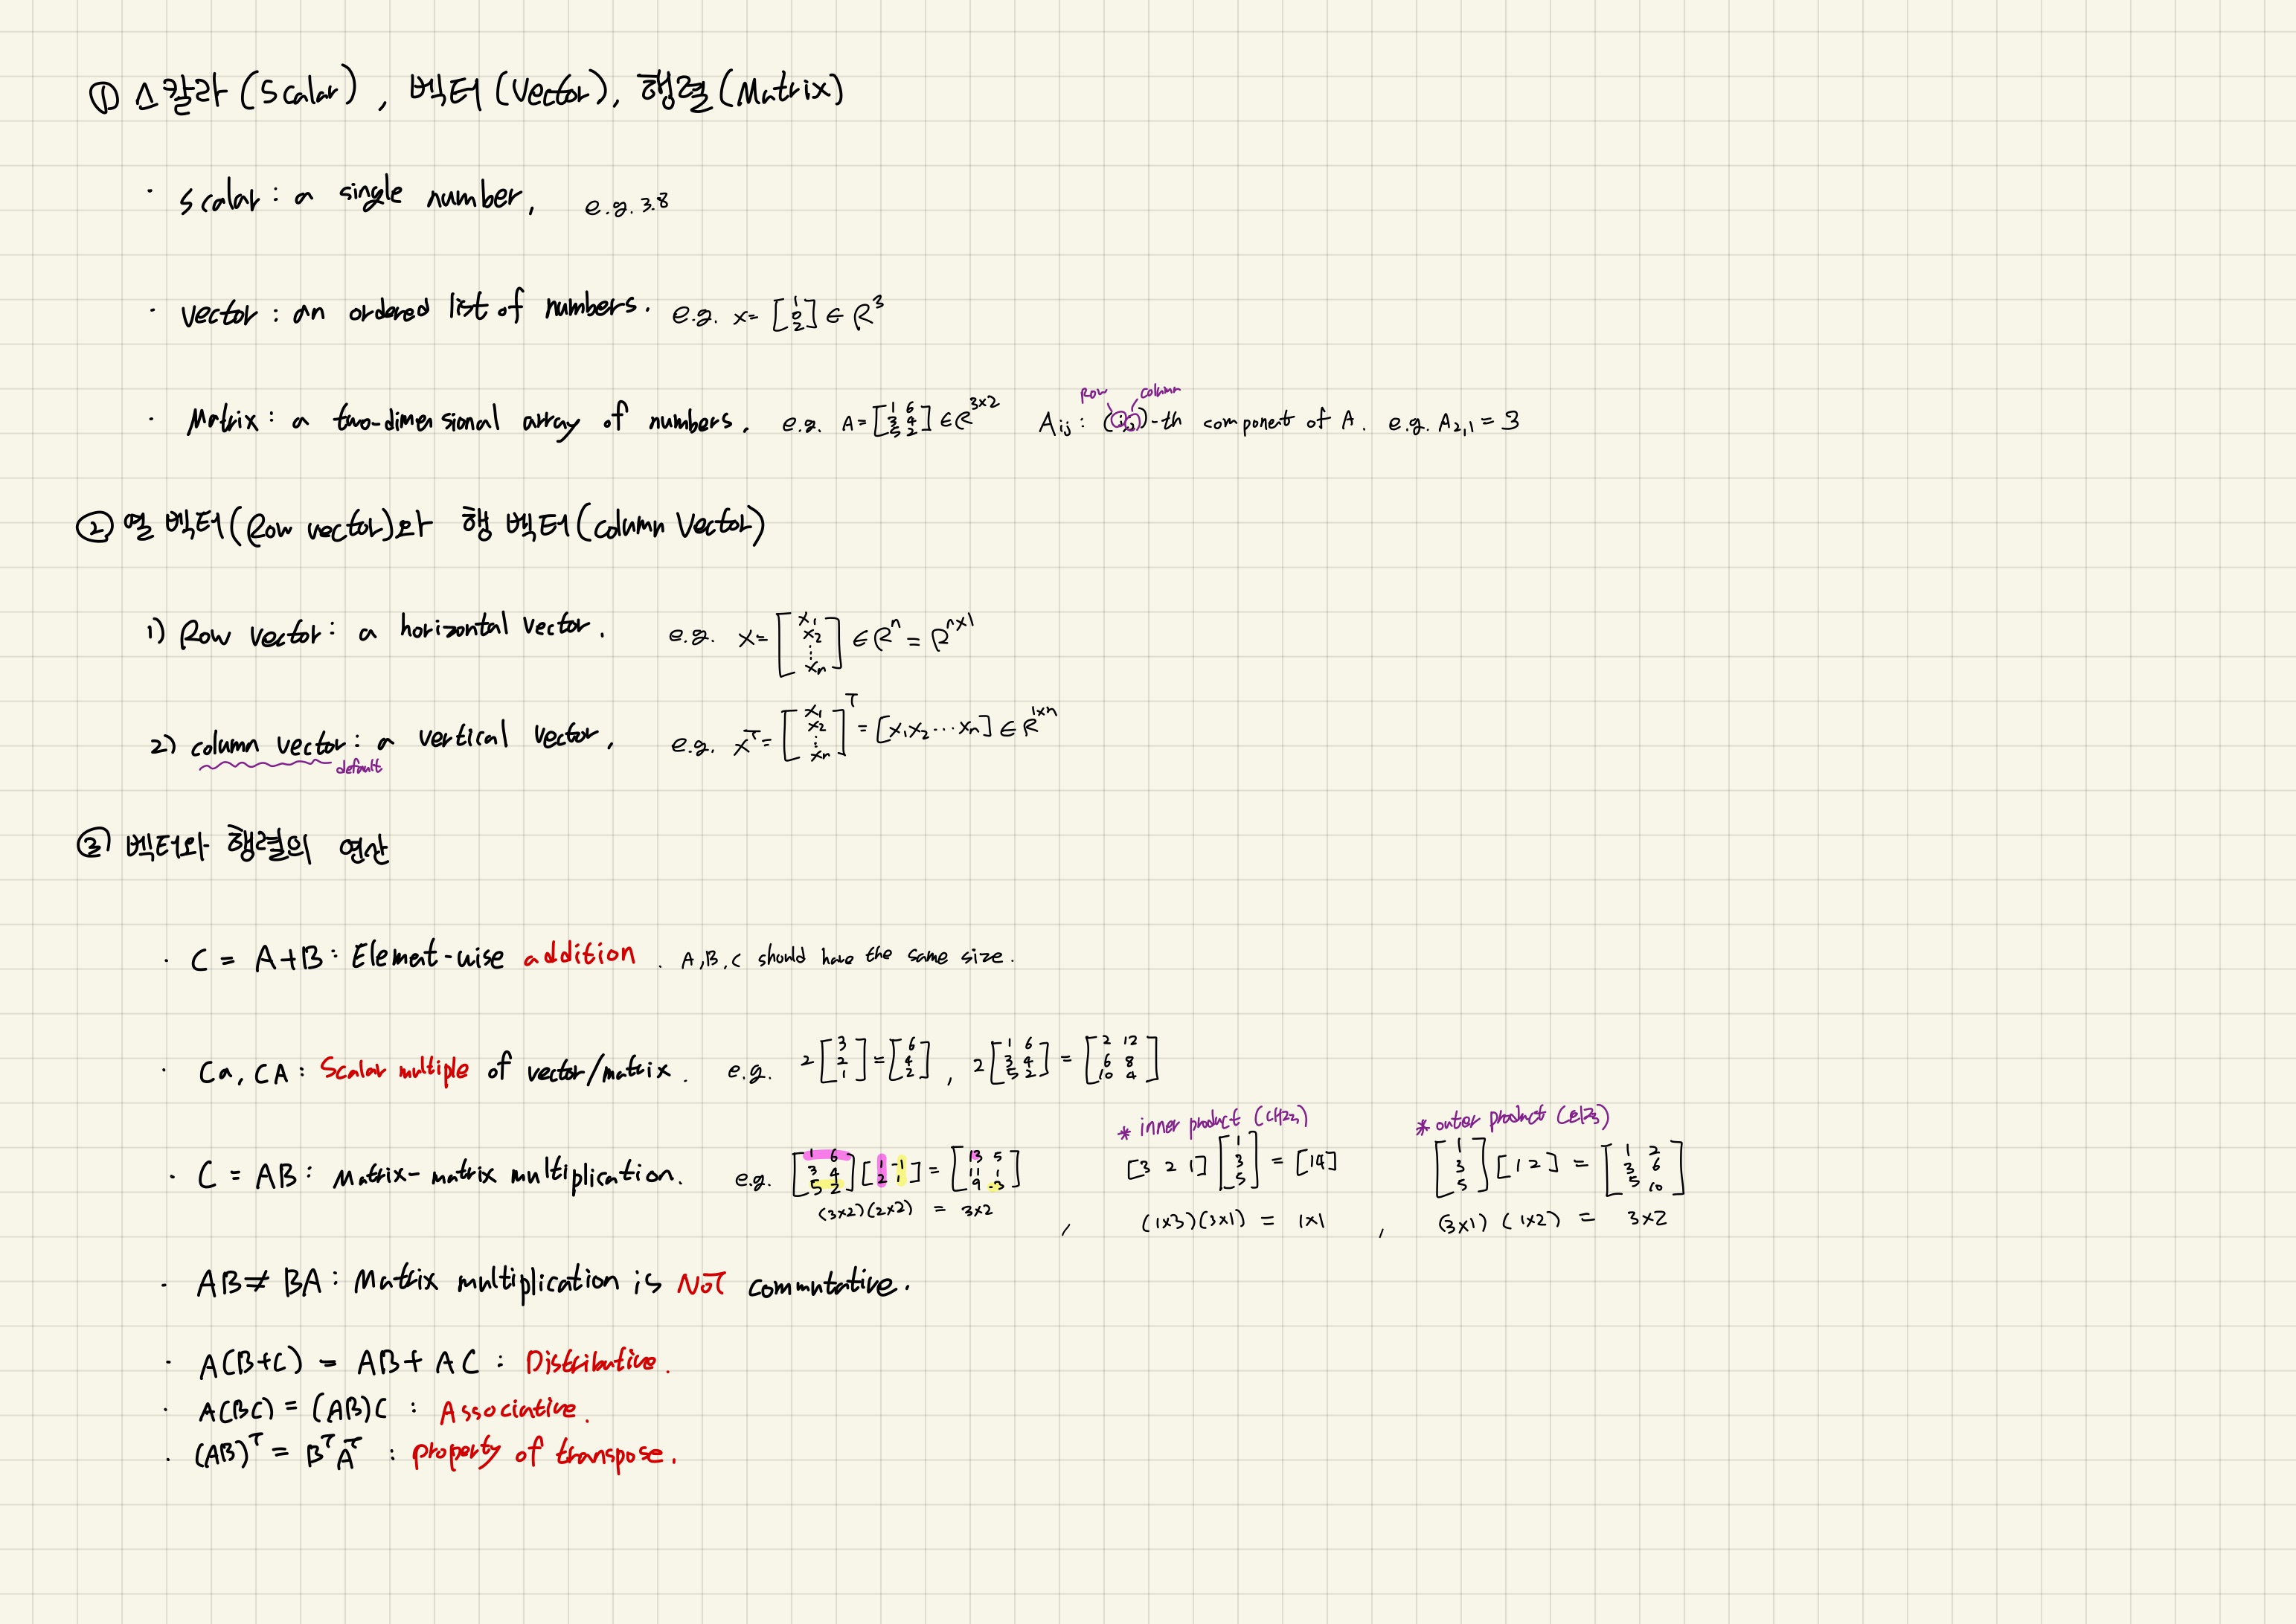 ① 스칼라(Scalar), 벡터(Vector), 행렬(Matrix)
· scalar : a single number, e.g. 3.8
· vector : an ordered list of numbers. e.g. x = [1 0 2] ∈ R³
Row column
· Matrix : a two-dimensional array of numbers. e.g. A = [1 6; 3 4; 5 2] ∈ R^{3×2} A_{ij} : (i,j)-th component of A. e.g. A_{2,1} = 3
② 열 벡터(Row vector)와 행 벡터(column Vector)
1) Row vector : a horizontal vector. e.g. x = [x₁ x₂ ⋮ xₙ] ∈ Rⁿ = R^{n×1}
2) column vector : a vertical vector, e.g. x^T = [x₁ x₂ ⋮ xₙ]^T = [x₁ x₂ ⋯ xₙ] ∈ R^{1×n}
default
③ 벡터와 행렬의 연산
· C = A+B : Elemet-wise addition. A,B,C should have the same size.
· Ca, CA : Scalar multiple of vector/matrix. e.g. 2[3; 2; 1] = [6; 4; 2], 2[1 6; 3 4; 5 2] = [2 12; 6 8; 10 4]
* inner product (내적) * outer product (외적)
· C = AB : Matrix-matrix multiplication. e.g. [1 6; 3 4; 5 2][1 -1; 2 1] = [13 5; 11 1; 9 -3] [3 2 1][1; 3; 5] = [14] [1; 3; 5][1 2] = [1 2; 3 6; 5 10]
(3×2)(2×2) = 3×2 , (1×3)(3×1) = 1×1 , (3×1)(1×2) = 3×2
· AB ≠ BA : Matrix multiplication is NOT commutative.
· A(B+C) = AB + AC : Distributive.
· A(BC) = (AB)C : Associative.
· (AB)^T = B^T A^T : property of transpose.